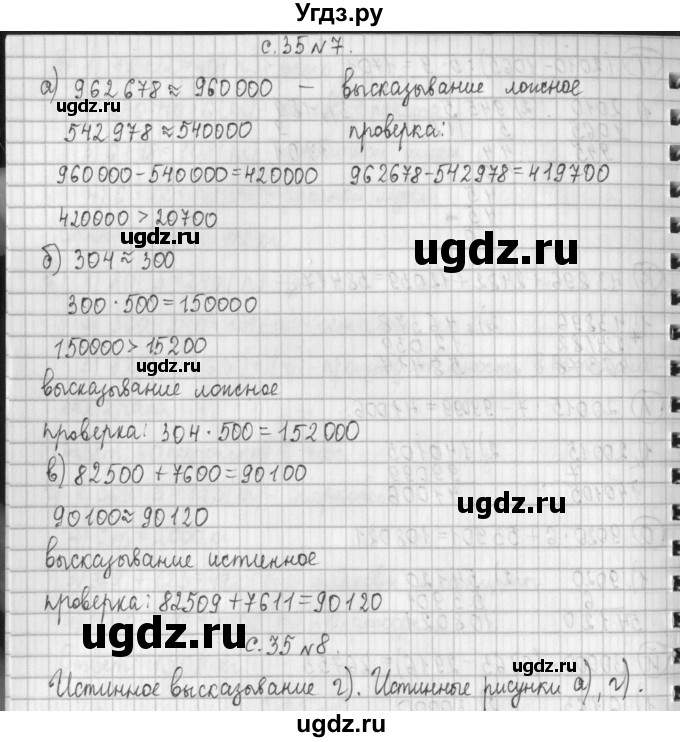 Угдз.ру
с. 35 №7.
а) 962678 ≈ 960000 — высказывание ложное
542978 ≈ 540000 проверка:
960000 - 540000 = 420000 962678 - 542978 = 419700
420000 > 20700
б) 304 ≈ 300
300 · 500 = 150000
150000 > 15200
высказывание ложное
проверка: 304 · 500 = 152000
в) 82500 + 7600 = 90100
90100 ≈ 90120
высказывание истинное
проверка: 82509 + 7611 = 90120
с. 35 №8.
Истинное высказывание г). Истинные рисунки а), г).
ugdz.ru
ugdz.ru
ugdz.ru
ugdz.ru
ugdz.ru
ugdz.ru
ugdz.ru
ugdz.ru
ugdz.ru
ugdz.ru